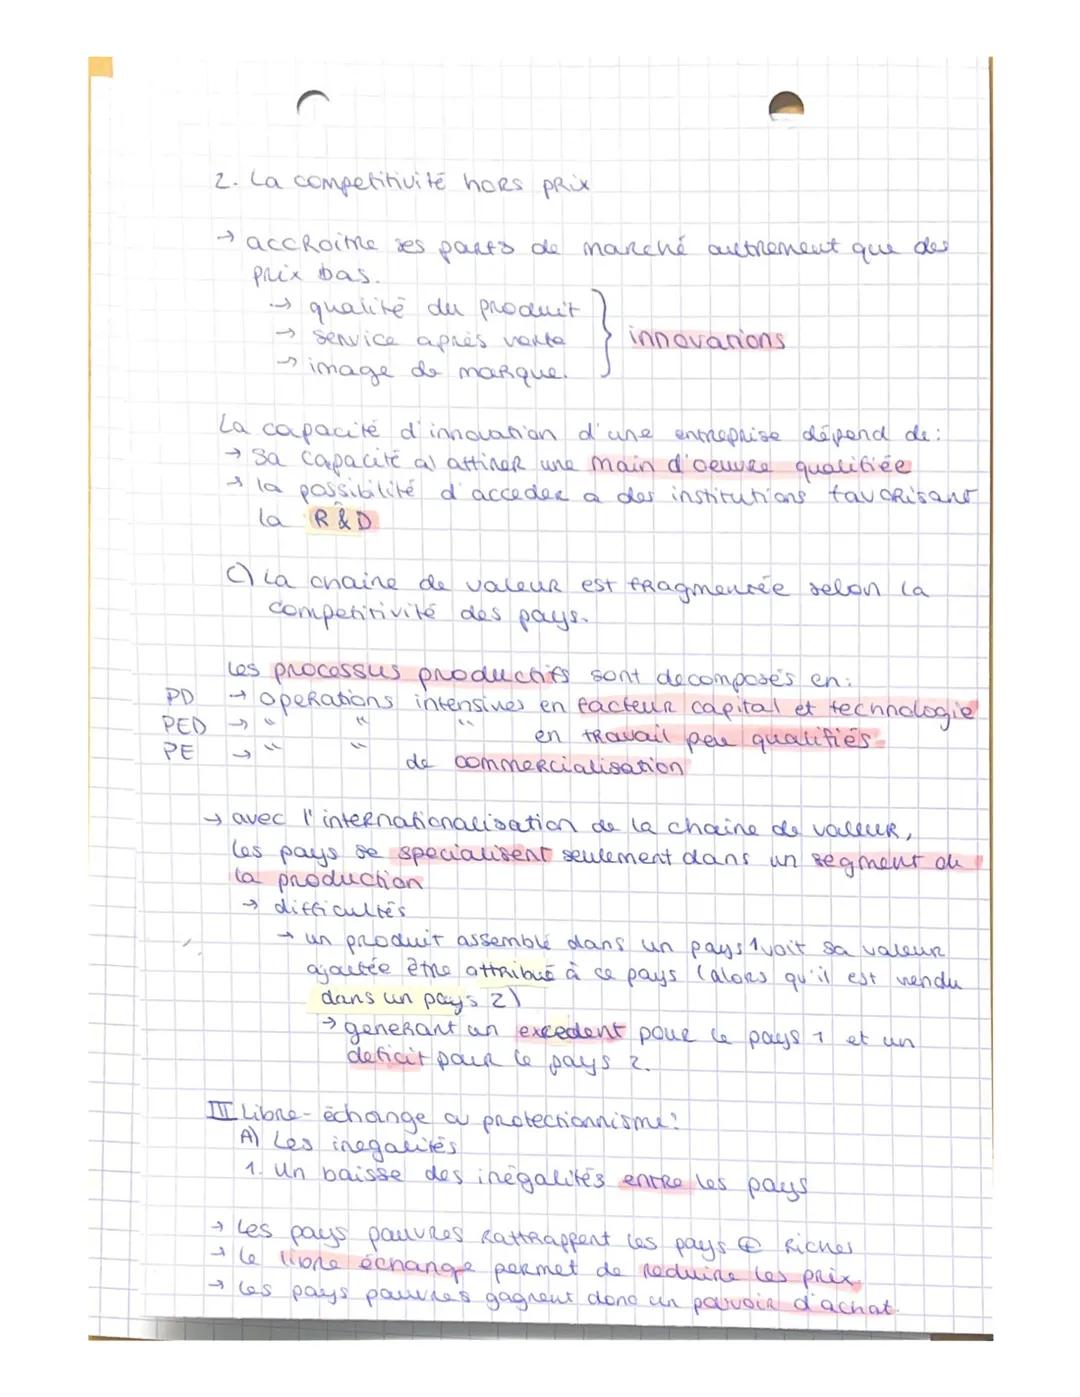 2. La competitivité hors prix
→ accroitre ses parts de marché autrement que des
prix bas.
→ qualité du produit
→ service après vente } innovations
→ image de marque.
La capacité d'innovation d'une entreprise dépend de :
→ sa capacité à attirer une main d'oeuvre qualifiée
→ la possibilité d'acceder a des institutions favorisant
la R & D
C) La chaine de valeur est fragmentée selon la
competitivité des pays.
Les processus productifs sont decomposés en :
PD → operations intensives en facteur capital et technologie
PED → " " " en travail peu qualifiés
PE → " " de commercialisation
→ avec l'internationalisation de la chaine de valeur,
les pays se specialisent seulement dans un segment de
la production
→ difficultés
→ un produit assemblé dans un pays 1 voit sa valeur
ajoutée être attribué à ce pays (alors qu'il est vendu
dans un pays 2)
→ generant un excedent pour le pays 1 et un
deficit pour le pays 2.
III Libre-échange ou protectionnisme ?
A) Les inegalités
1. Un baisse des inégalités entre les pays
→ Les pays pauvres rattrappent les pays ⊕ riches
→ Le libre échange permet de reduire les prix
→ Les pays pauvres gagnent donc un pouvoir d'achat.